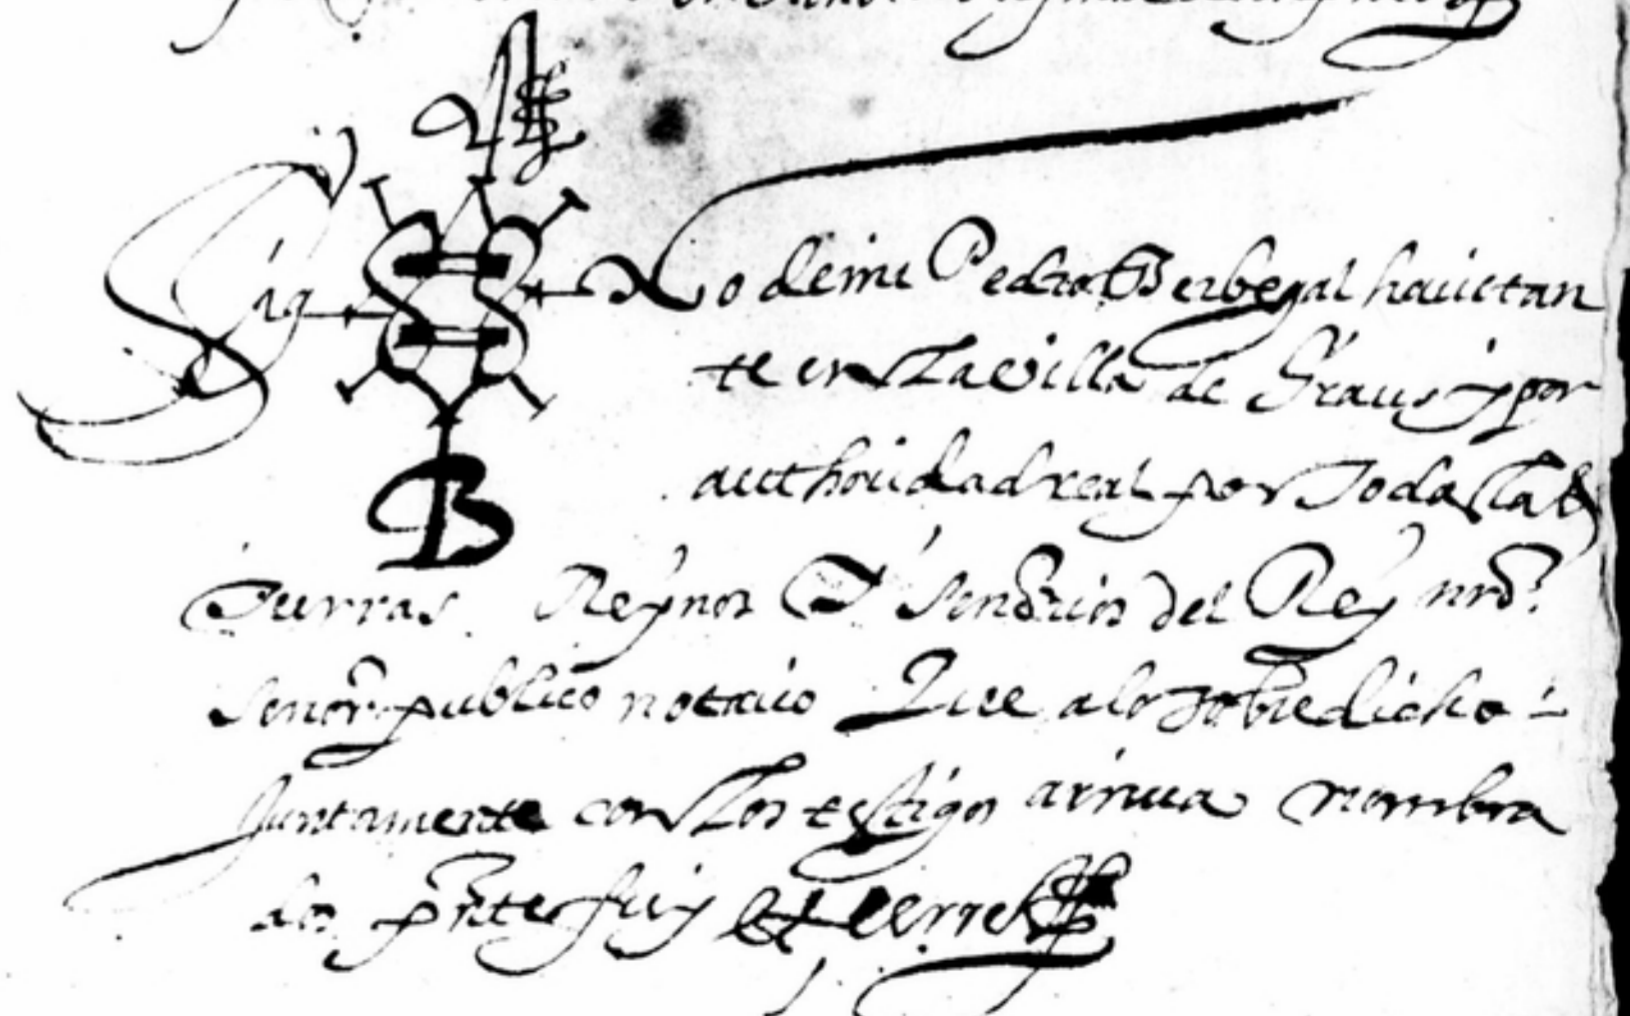 Sig No de mi Pedro Berbegal havitan
te en la villa de Graus y por
authoridad real por todas las
Tierras Reynos Y Senorios del Rey nro
Senor publico notario Que a lo sobredicho
Juntamente con los testigos arriva nombra
dos pnte fuy Et cerre
B